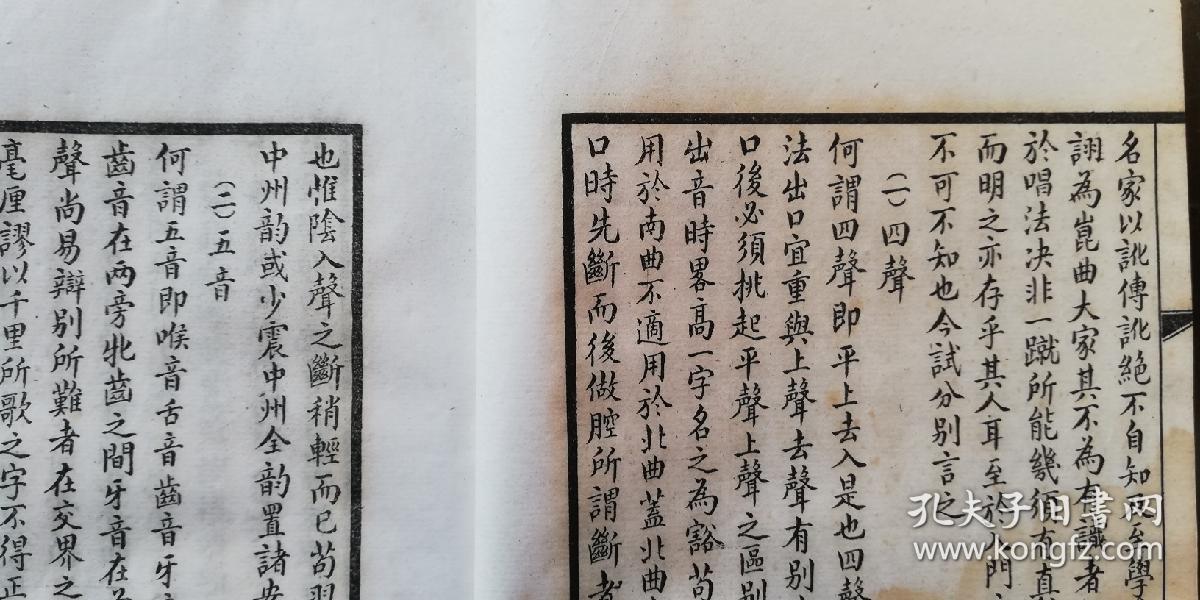 名家以訛傳訛絶不自知两至學
詡為崑曲大家其不為有識者
於唱法决非一蹴所能幾
而明之亦存乎其人耳至於入門
不可不知也今試分别言之
(一)四聲
何謂四聲即平上去入是也四聲
法出口宜重與上聲去聲有别
口後必須挑起平聲上聲之區别
出音時畧高一字名之為豁苟
用於南曲不適用於北曲蓋北曲
口時先斷而後做腔所謂斷者
也惟陰入聲之斷稍輕而已苟習
中州韵或少震中州全韵置諸
(二)五音
何謂五音即喉音舌音齒音牙
齒音在两旁牝齒之間牙音在
聲尚易辯别所難者在交界之
毫厘謬以千里所歌之字不得正
孔夫子旧书网
www.kongfz.com